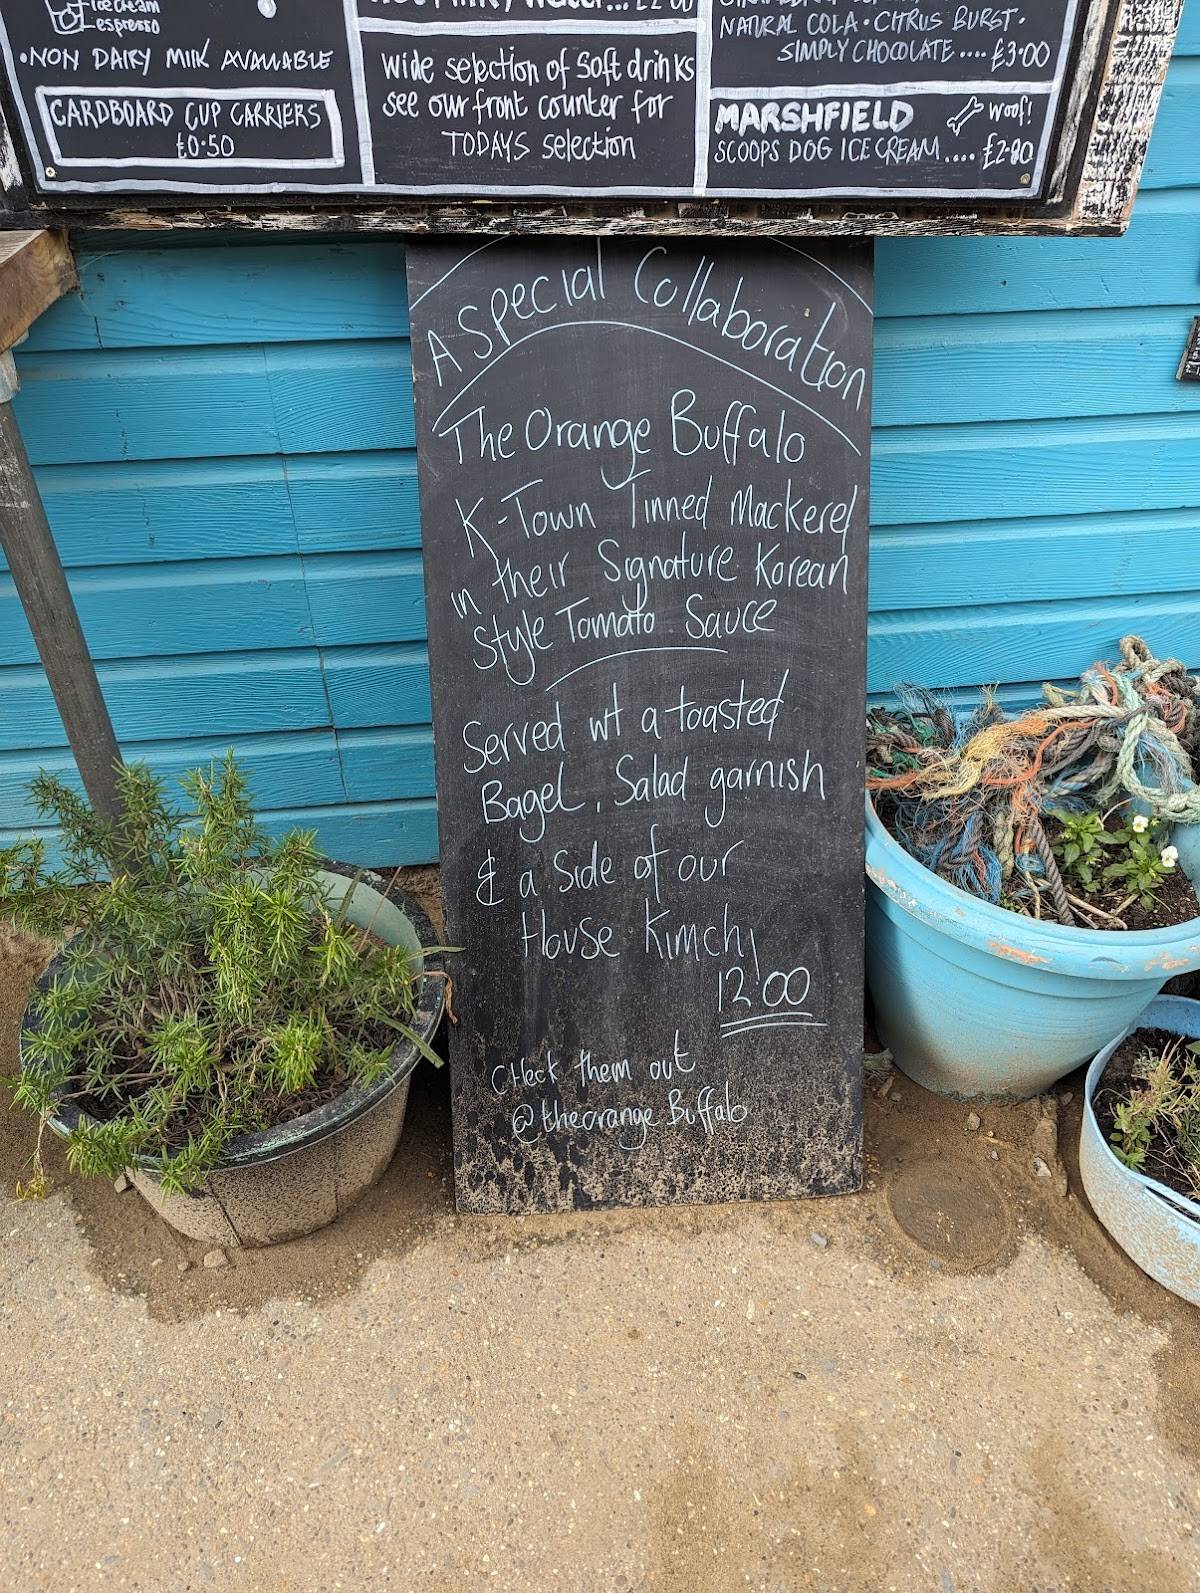 icecream
espresso
•NON DAIRY MILK AVAILABLE
CARDBOARD CUP CARRIERS
£0·50
wide selection of soft drinks
see our front counter for
TODAYS selection
NATURAL COLA • CITRUS BURST •
SIMPLY CHOCOLATE .... £3·00
MARSHFIELD woof!
SCOOPS DOG ICE CREAM .... £2·80
A Special Collaboration
The Orange Buffalo
K-Town Tinned Mackerel
in their Signature Korean
Style Tomato Sauce
Served wt a toasted
Bagel, Salad garnish
& a side of our
House Kimchi
12'00
CHeck them out
@theorange Buffalo